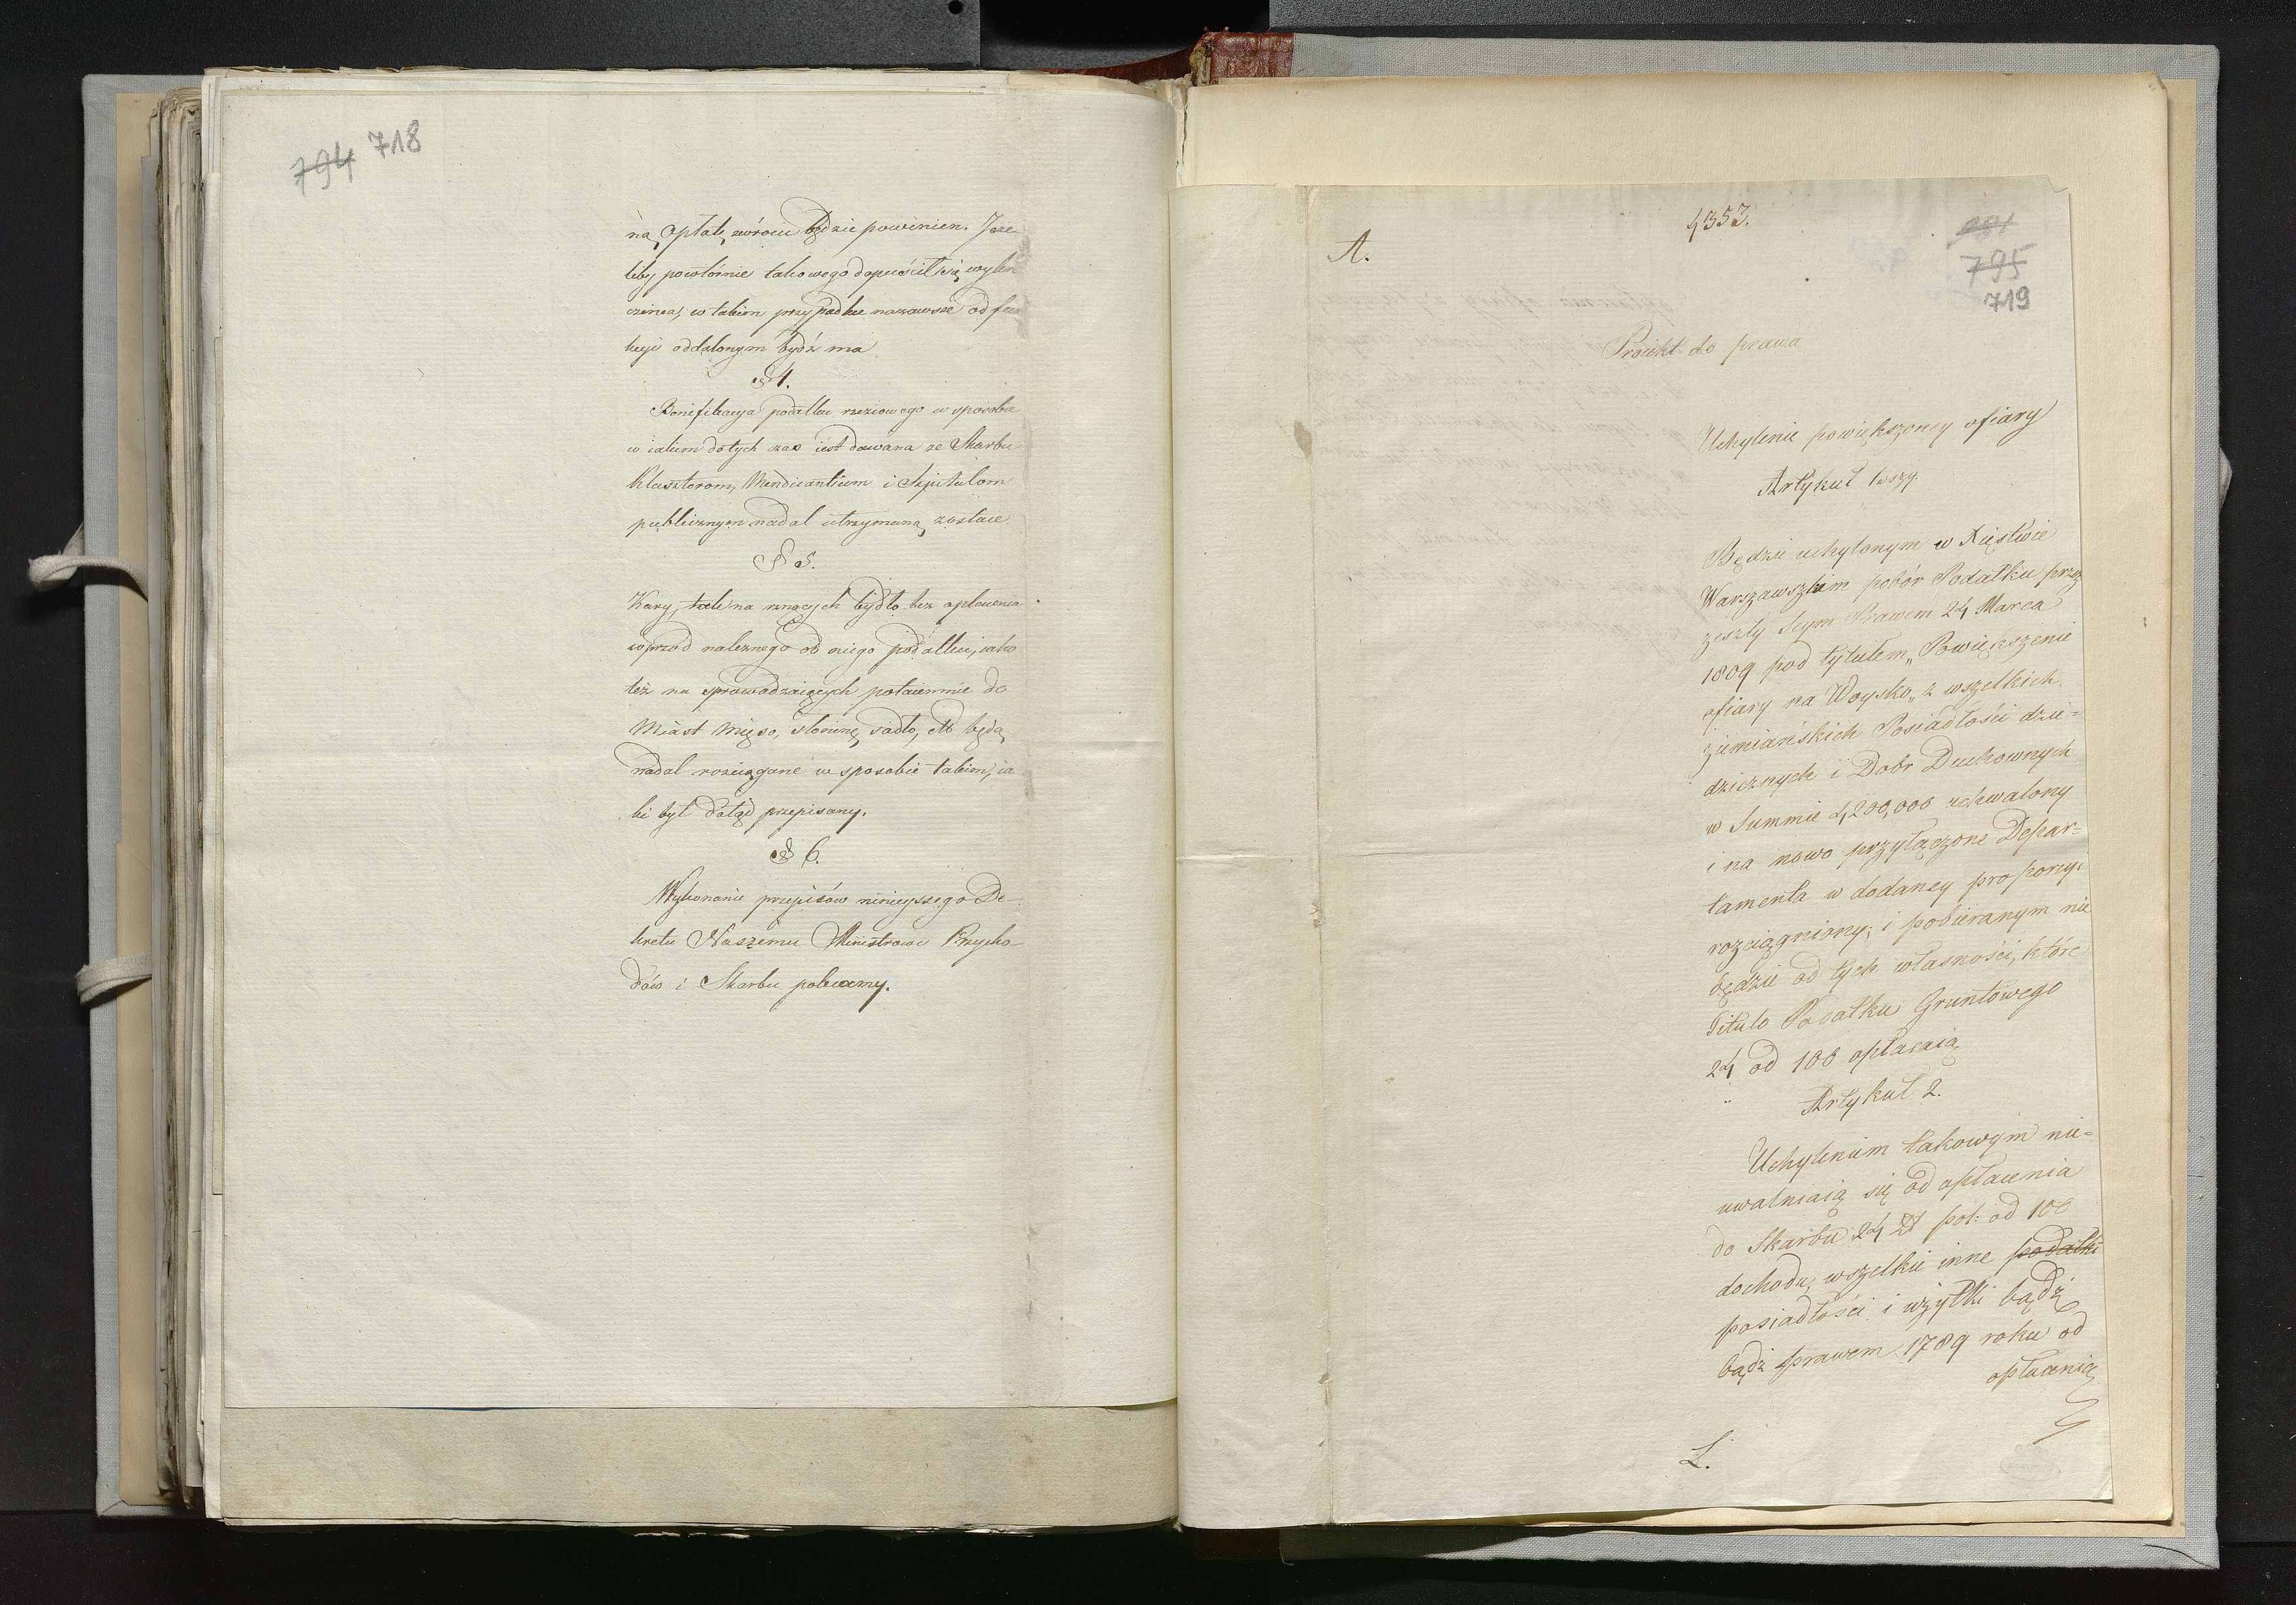 794 718
ną opłatę zwrócić będzie powinien. Jeże
liby powtórnie takowego dopuścił się wykro
czenia, w takim przypadku nazawsze od fun
kcyi oddalonym bydź ma
§ 4.
Bonifikacya podatku rzeziowego w sposobie
w iakim dotych czas iest dawana ze Skarbu
Klasztorom, Mendicantium i Szpitalom
publicznym nadal utrzymaną zostaie.
§ 5.
Kary, tak na rznących bydło bez opłacenia
wprzód należnego od niego podatku, iako
też na sprowadzaiących potaiemnie do
Miast mięso, słoninę, sadło, etc będą
nadal rozciągane w sposobie takim, ia
ki był dotąd przepisany.
§ 6.
Wykonanie przepisów ninieyszego De-
kretu Naszemu Ministrowi Przycho-
dów i Skarbu polecamy.
A.
4353.
795
719
Proiekt do prawa
Uchylenie powiększoney ofiary
Artykuł 1wszy.
Będzie uchylonym w Xięstwie
Warszawskim pobór Podatku przez
zeszły Seym Prawem 24 Marca
1809 pod tytułem „Powiększenie
ofiary na Woysko„ z wszelkich
ziemiańskich Posiadłości dzie=
dzicznych i Dobr Duchownych
w Summie 4,200,000 uchwalony
i na nowo przyłączone Depar=
tamenta w dodaney proporcyi
rozciągniony; i pobieranym nie
będzie od tych własności, które
Titulo Podatku Gruntowego
24 od 100 opłacaią
Artykuł 2.
Uchyleniem takowym nie=
uwalniaią się od opłacenia
do Skarbu 24 Zł pol: od 100
dochodu, wszelkie inne podatki
posiadłości i użytki bądź
bądź prawem 1789 roku od
opłacenia
L.